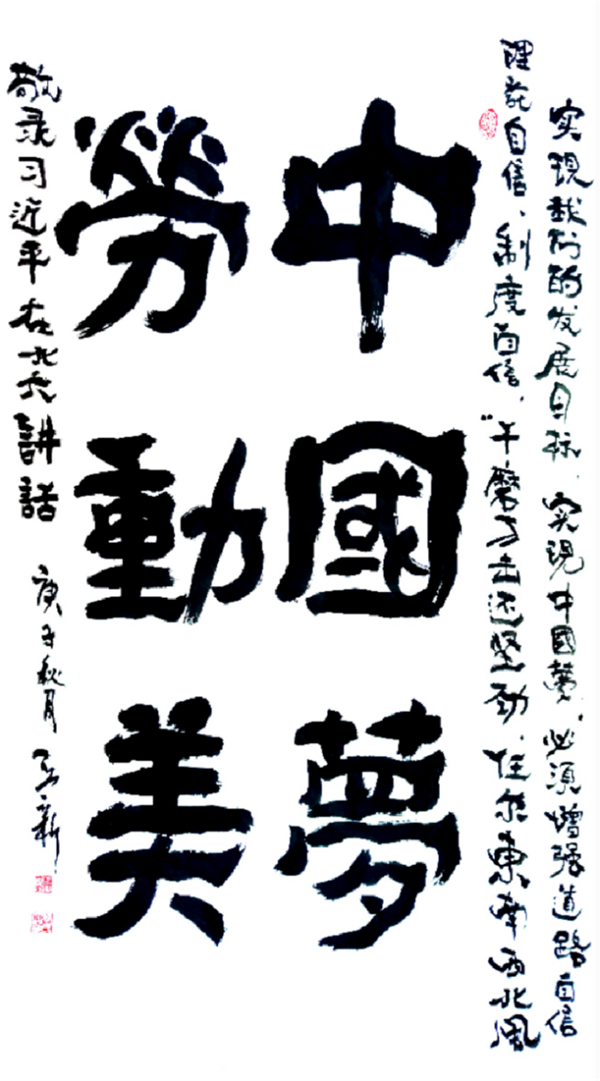 实現我们的发展目标、实現中國夢，必须增强道路自信
理论自信、制度自信，“千磨万击还坚劲，任尔東南西北風
中國夢
勞動美
敬录习近平在北大講話
庚子秋月